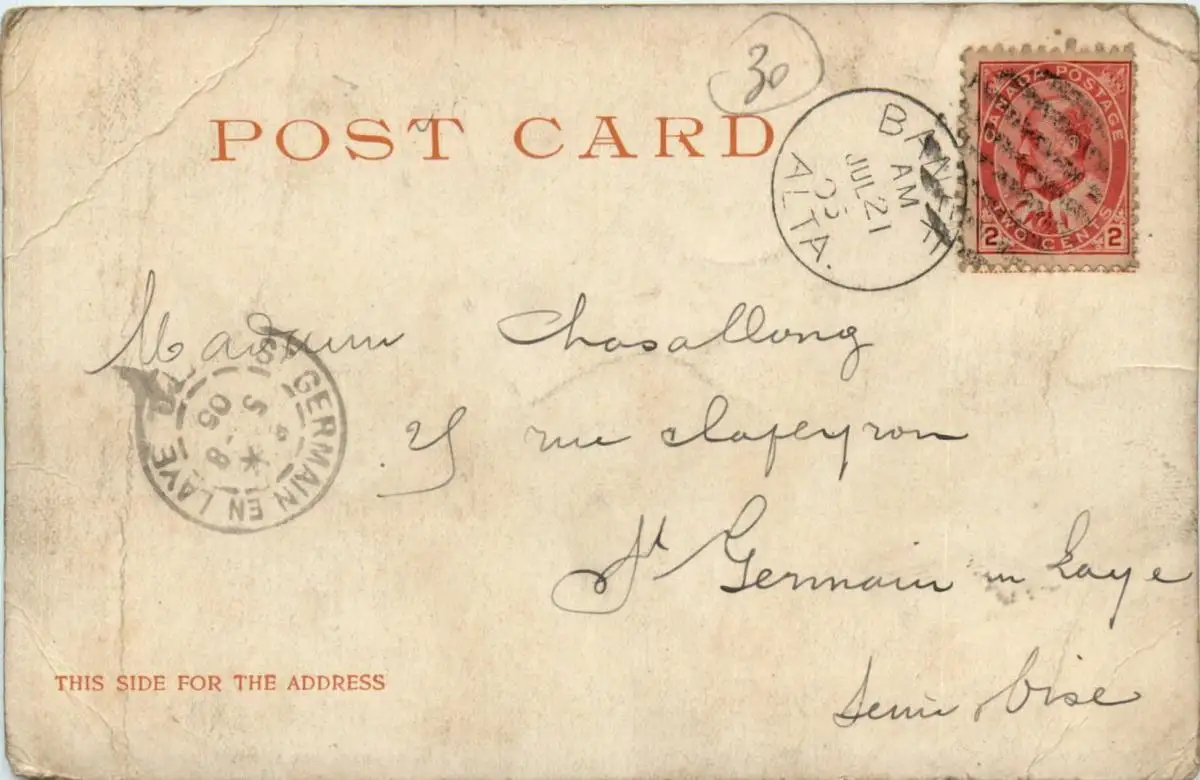 30
POST CARD
BANFF
AM
JUL 21
05
ALTA.
CANADA POSTAGE
TWO CENTS
2 2
rue Clapeyron
St Germain en Laye
Seine Oise
ST GERMAIN EN LAYE
5 - 8
05
THIS SIDE FOR THE ADDRESS